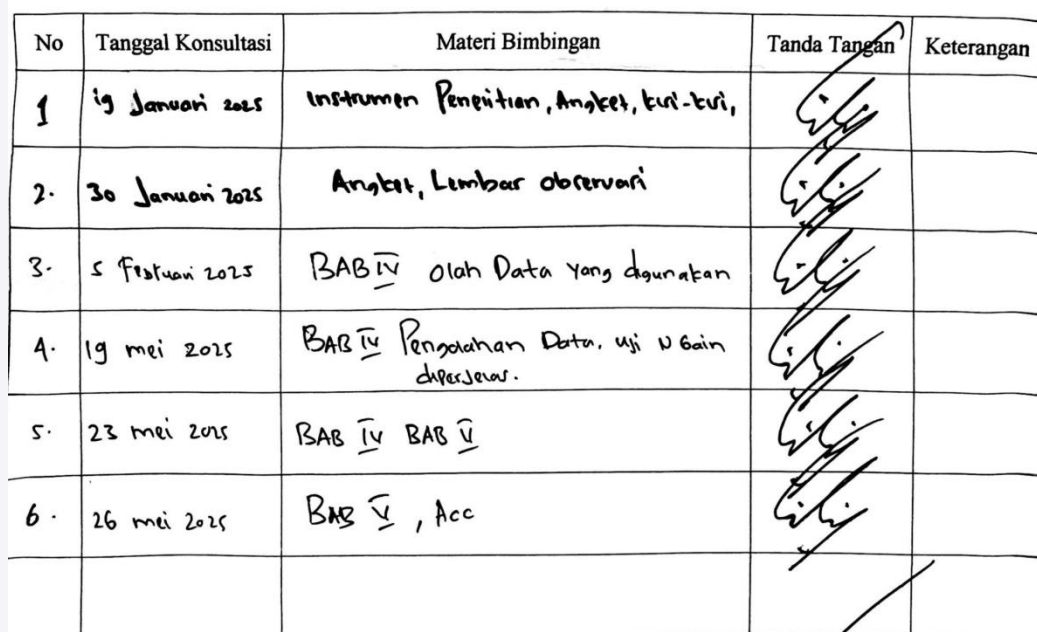 No Tanggal Konsultasi Materi Bimbingan Tanda Tangan Keterangan
1 19 Januari 2025 Instrumen Penelitian, Angket, kisi-kisi,
2. 30 Januari 2025 Angket, Lembar observasi
3. 5 Februari 2025 BAB IV olah Data yang digunakan
4. 19 mei 2025 BAB IV Pengolahan Data, uji N Gain
diperjelas.
5. 23 mei 2025 BAB IV BAB V
6. 26 mei 2025 BAB V, Acc